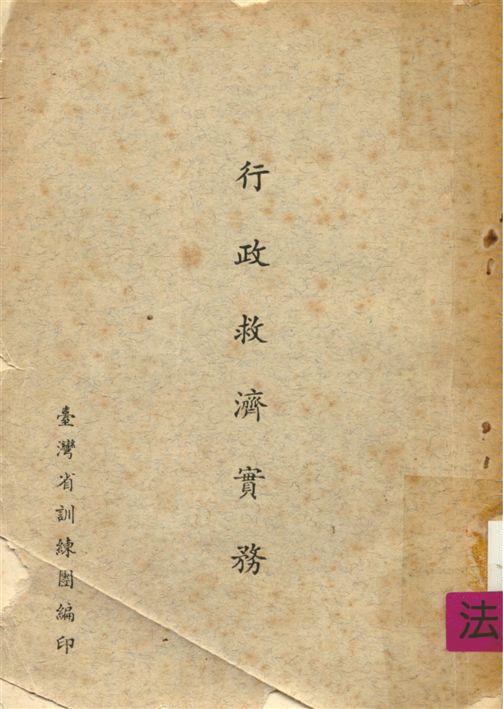 行政救濟實務
臺灣省訓練團編印
法